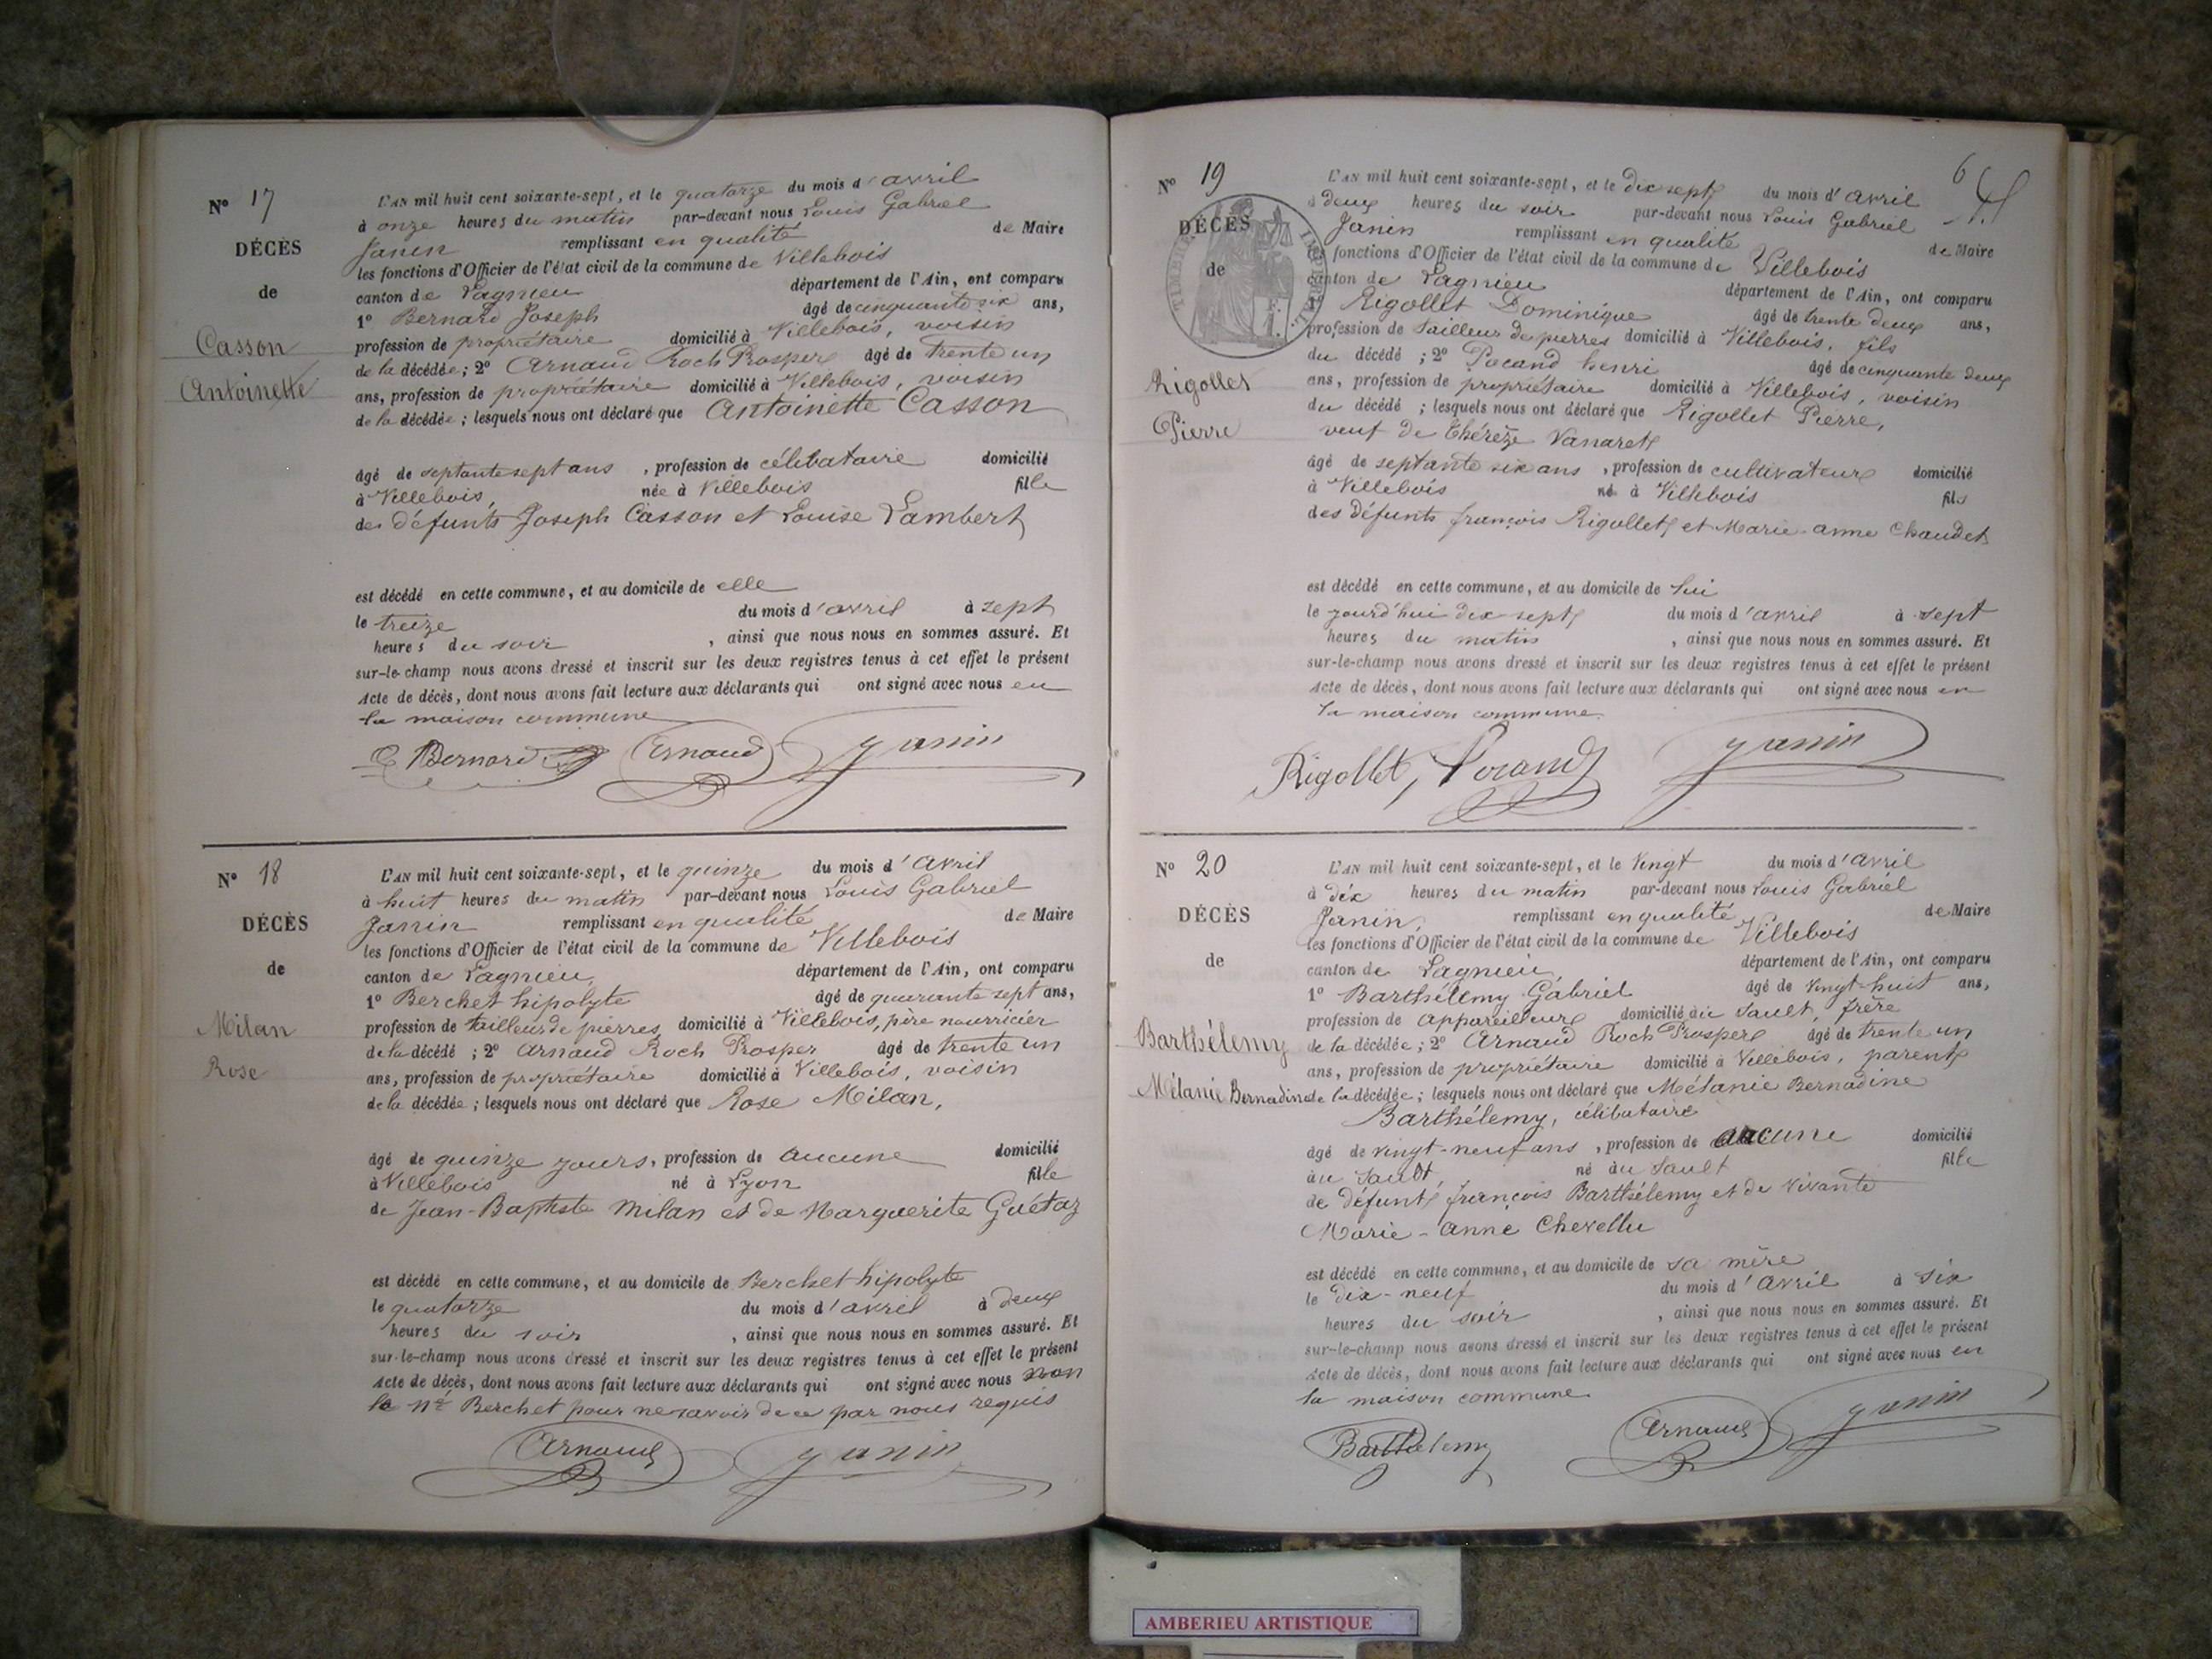 N° 17
DÉCÈS
de
Casson
Antoinette
L'AN mil huit cent soixante-sept, et le quatorze du mois d'avril
à onze heures du matin par-devant nous Louis Gabriel
Janin remplissant en qualité de Maire
les fonctions d'Officier de l'état civil de la commune de Villebois
canton de Lagnieu département de l'Ain, ont comparu
1° Bernard Joseph âgé de cinquante six ans,
profession de propriétaire domicilié à Villebois, voisin
de la décédée; 2° Arnaud Roch Prosper âgé de trente un
ans, profession de propriétaire domicilié à Villebois, voisin
de la décédée; lesquels nous ont déclaré que Antoinette Casson
âgé de septante sept ans, profession de célibataire domicilié
à Villebois, née à Villebois fille
des défunts Joseph Casson et Louise Lambert
est décédé en cette commune, et au domicile de elle
le treize du mois d'avril à sept
heures du soir, ainsi que nous nous en sommes assuré. Et
sur-le-champ nous avons dressé et inscrit sur les deux registres tenus à cet effet le présent
Acte de décès, dont nous avons fait lecture aux déclarants qui ont signé avec nous en
la maison commune
Bernard Arnaud Janin
N° 18
DÉCÈS
de
Milan
Rose
L'AN mil huit cent soixante-sept, et le quinze du mois d'avril
à huit heures du matin par-devant nous Louis Gabriel
Janin remplissant en qualité de Maire
les fonctions d'Officier de l'état civil de la commune de Villebois
canton de Lagnieu, département de l'Ain, ont comparu
1° Berchet hipolyte âgé de quarante sept ans,
profession de tailleur de pierres domicilié à Villebois, père nourricier
de la décédé; 2° Arnaud Roch Prosper âgé de trente un
ans, profession de propriétaire domicilié à Villebois, voisin
de la décédée; lesquels nous ont déclaré que Rose Milan,
âgé de quinze jours, profession de aucune domicilié
à Villebois né à Lyon fille
de Jean-Baptiste Milan et de Marguerite Guétaz
est décédé en cette commune, et au domicile de Berchet hipolyte
le quatorze du mois d'avril à deux
heures du soir, ainsi que nous nous en sommes assuré. Et
sur-le-champ nous avons dressé et inscrit sur les deux registres tenus à cet effet le présent
Acte de décès, dont nous avons fait lecture aux déclarants qui ont signé avec nous non
le né Berchet pour ne savoir de ce par nous requis
Arnaud Janin
6
N° 19
DÉCÈS
de
Rigollet
Pierre
L'AN mil huit cent soixante-sept, et le dix sept du mois d'avril
à deux heures du soir par-devant nous Louis Gabriel
Janin remplissant en qualité de Maire
les fonctions d'Officier de l'état civil de la commune de Villebois
canton de Lagnieu département de l'Ain, ont comparu
1° Rigollet Dominique âgé de trente deux ans,
profession de tailleur de pierres domicilié à Villebois, fils
du décédé; 2° Pocand henri âgé de cinquante deux
ans, profession de propriétaire domicilié à Villebois, voisin
du décédé; lesquels nous ont déclaré que Rigollet Pierre,
veuf de Thérèze Vanaret
âgé de septante six ans, profession de cultivateur domicilié
à Villebois né à Villebois fils
des défunts françois Rigollet et Marie-anne Chaudet
est décédé en cette commune, et au domicile de lui
le jourd'hui dix sept du mois d'avril à sept
heures du matin, ainsi que nous nous en sommes assuré. Et
sur-le-champ nous avons dressé et inscrit sur les deux registres tenus à cet effet le présent
Acte de décès, dont nous avons fait lecture aux déclarants qui ont signé avec nous en
la maison commune.
Rigollet, Pocand Janin
N° 20
DÉCÈS
de
Barthélemy
Mélanie Bernadine
L'AN mil huit cent soixante-sept, et le vingt du mois d'avril
à dix heures du matin par-devant nous Louis Gabriel
Janin, remplissant en qualité de Maire
les fonctions d'Officier de l'état civil de la commune de Villebois
canton de Lagnieu département de l'Ain, ont comparu
1° Barthélemy Gabriel âgé de vingt-huit ans,
profession de appareilleur domicilié au Sault, frère
de la décédée; 2° Arnaud Roch Prosper âgé de trente un
ans, profession de propriétaire domicilié à Villebois, parent
de la décédée; lesquels nous ont déclaré que Mélanie Bernadine
Barthélemy, célibataire
âgé de vingt-neuf ans, profession de aucune domicilié
au Sault, né au Sault fille
de défunt françois Barthélemy et de vivante
Marie-anne Chevellu
est décédé en cette commune, et au domicile de sa mère
le dix-neuf du mois d'avril à six
heures du soir, ainsi que nous nous en sommes assuré. Et
sur-le-champ nous avons dressé et inscrit sur les deux registres tenus à cet effet le présent
Acte de décès, dont nous avons fait lecture aux déclarants qui ont signé avec nous en
la maison commune
Barthelemy Arnaud Janin
AMBERIEU ARTISTIQUE